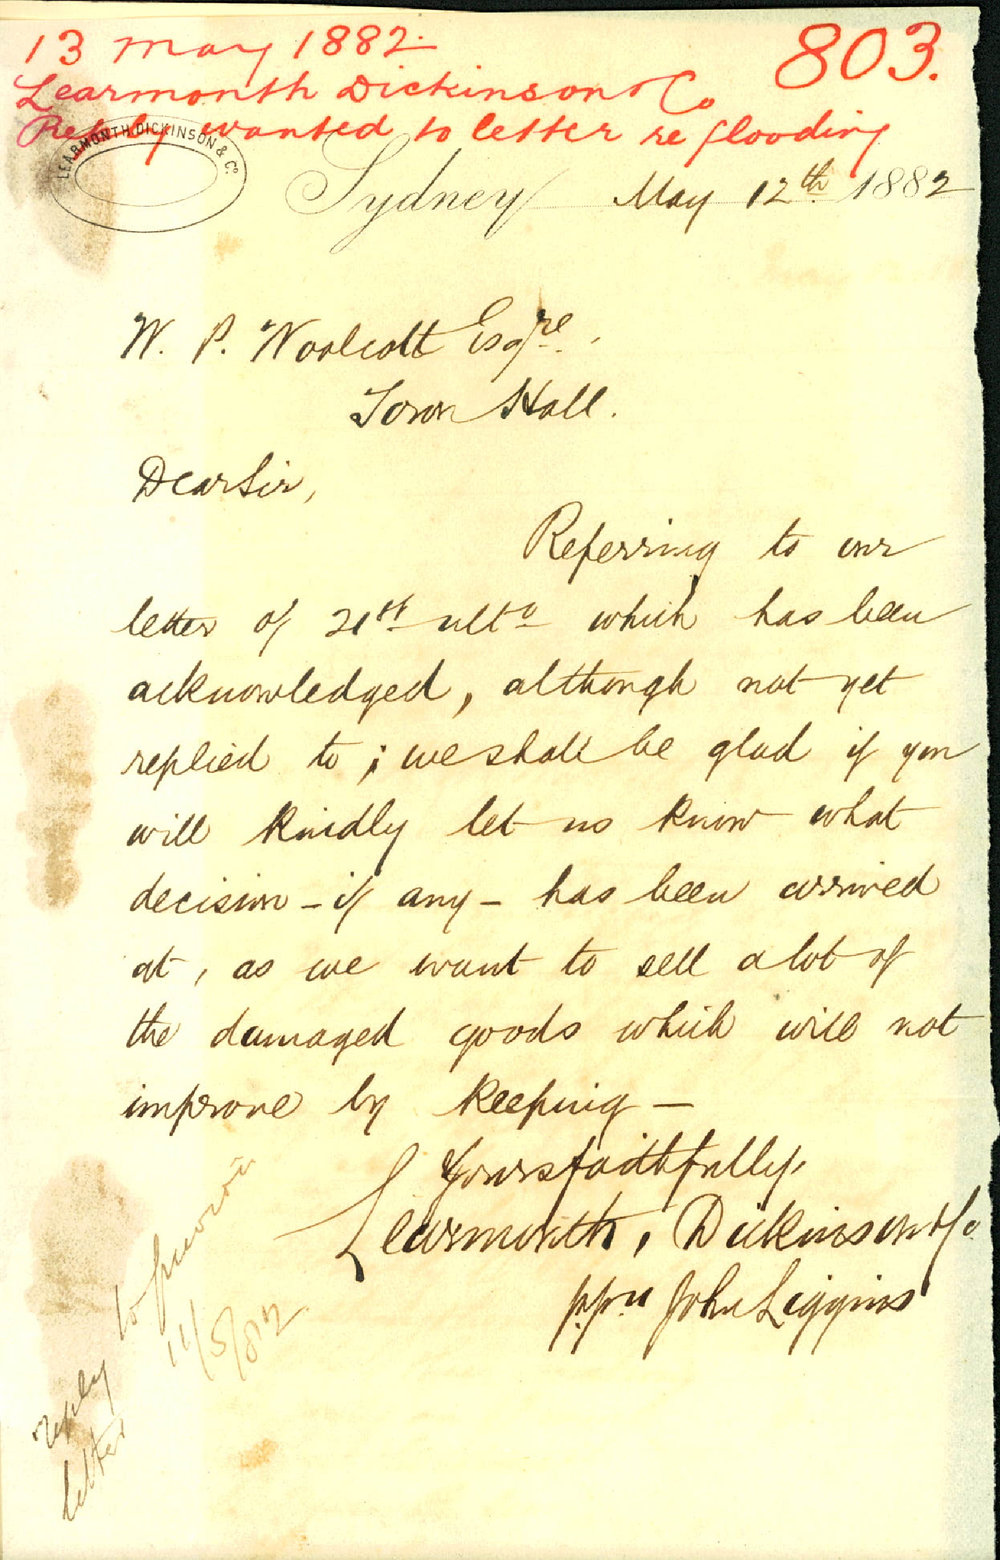 13 May 1882.
803.
Learmonth Dickinson & Co
Reply wanted to letter re flooding
LEARMONTH, DICKINSON & Co.
Sydney May 12th 1882
W. P. Woolcott Esqre.
Town Hall.
Dear Sir,
Referring to our
letter of 21st ulto which has been
acknowledged, although not yet
replied to; we shall be glad if you
will kindly let us know what
decision - if any - has been arrived
at, as we want to sell a lot of
the damaged goods which will not
improve by keeping -
Yours faithfully,
Learmonth, Dickinson & Co.
p.pn John Liggins
reply to previous
letter